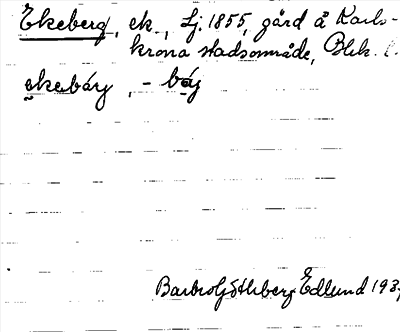 Ekeberg, ek., Lj. 1855, gård å Karls-
krona stadsområde, Blek. l.
ekebárj, - bárj
Barbro Edlund 193